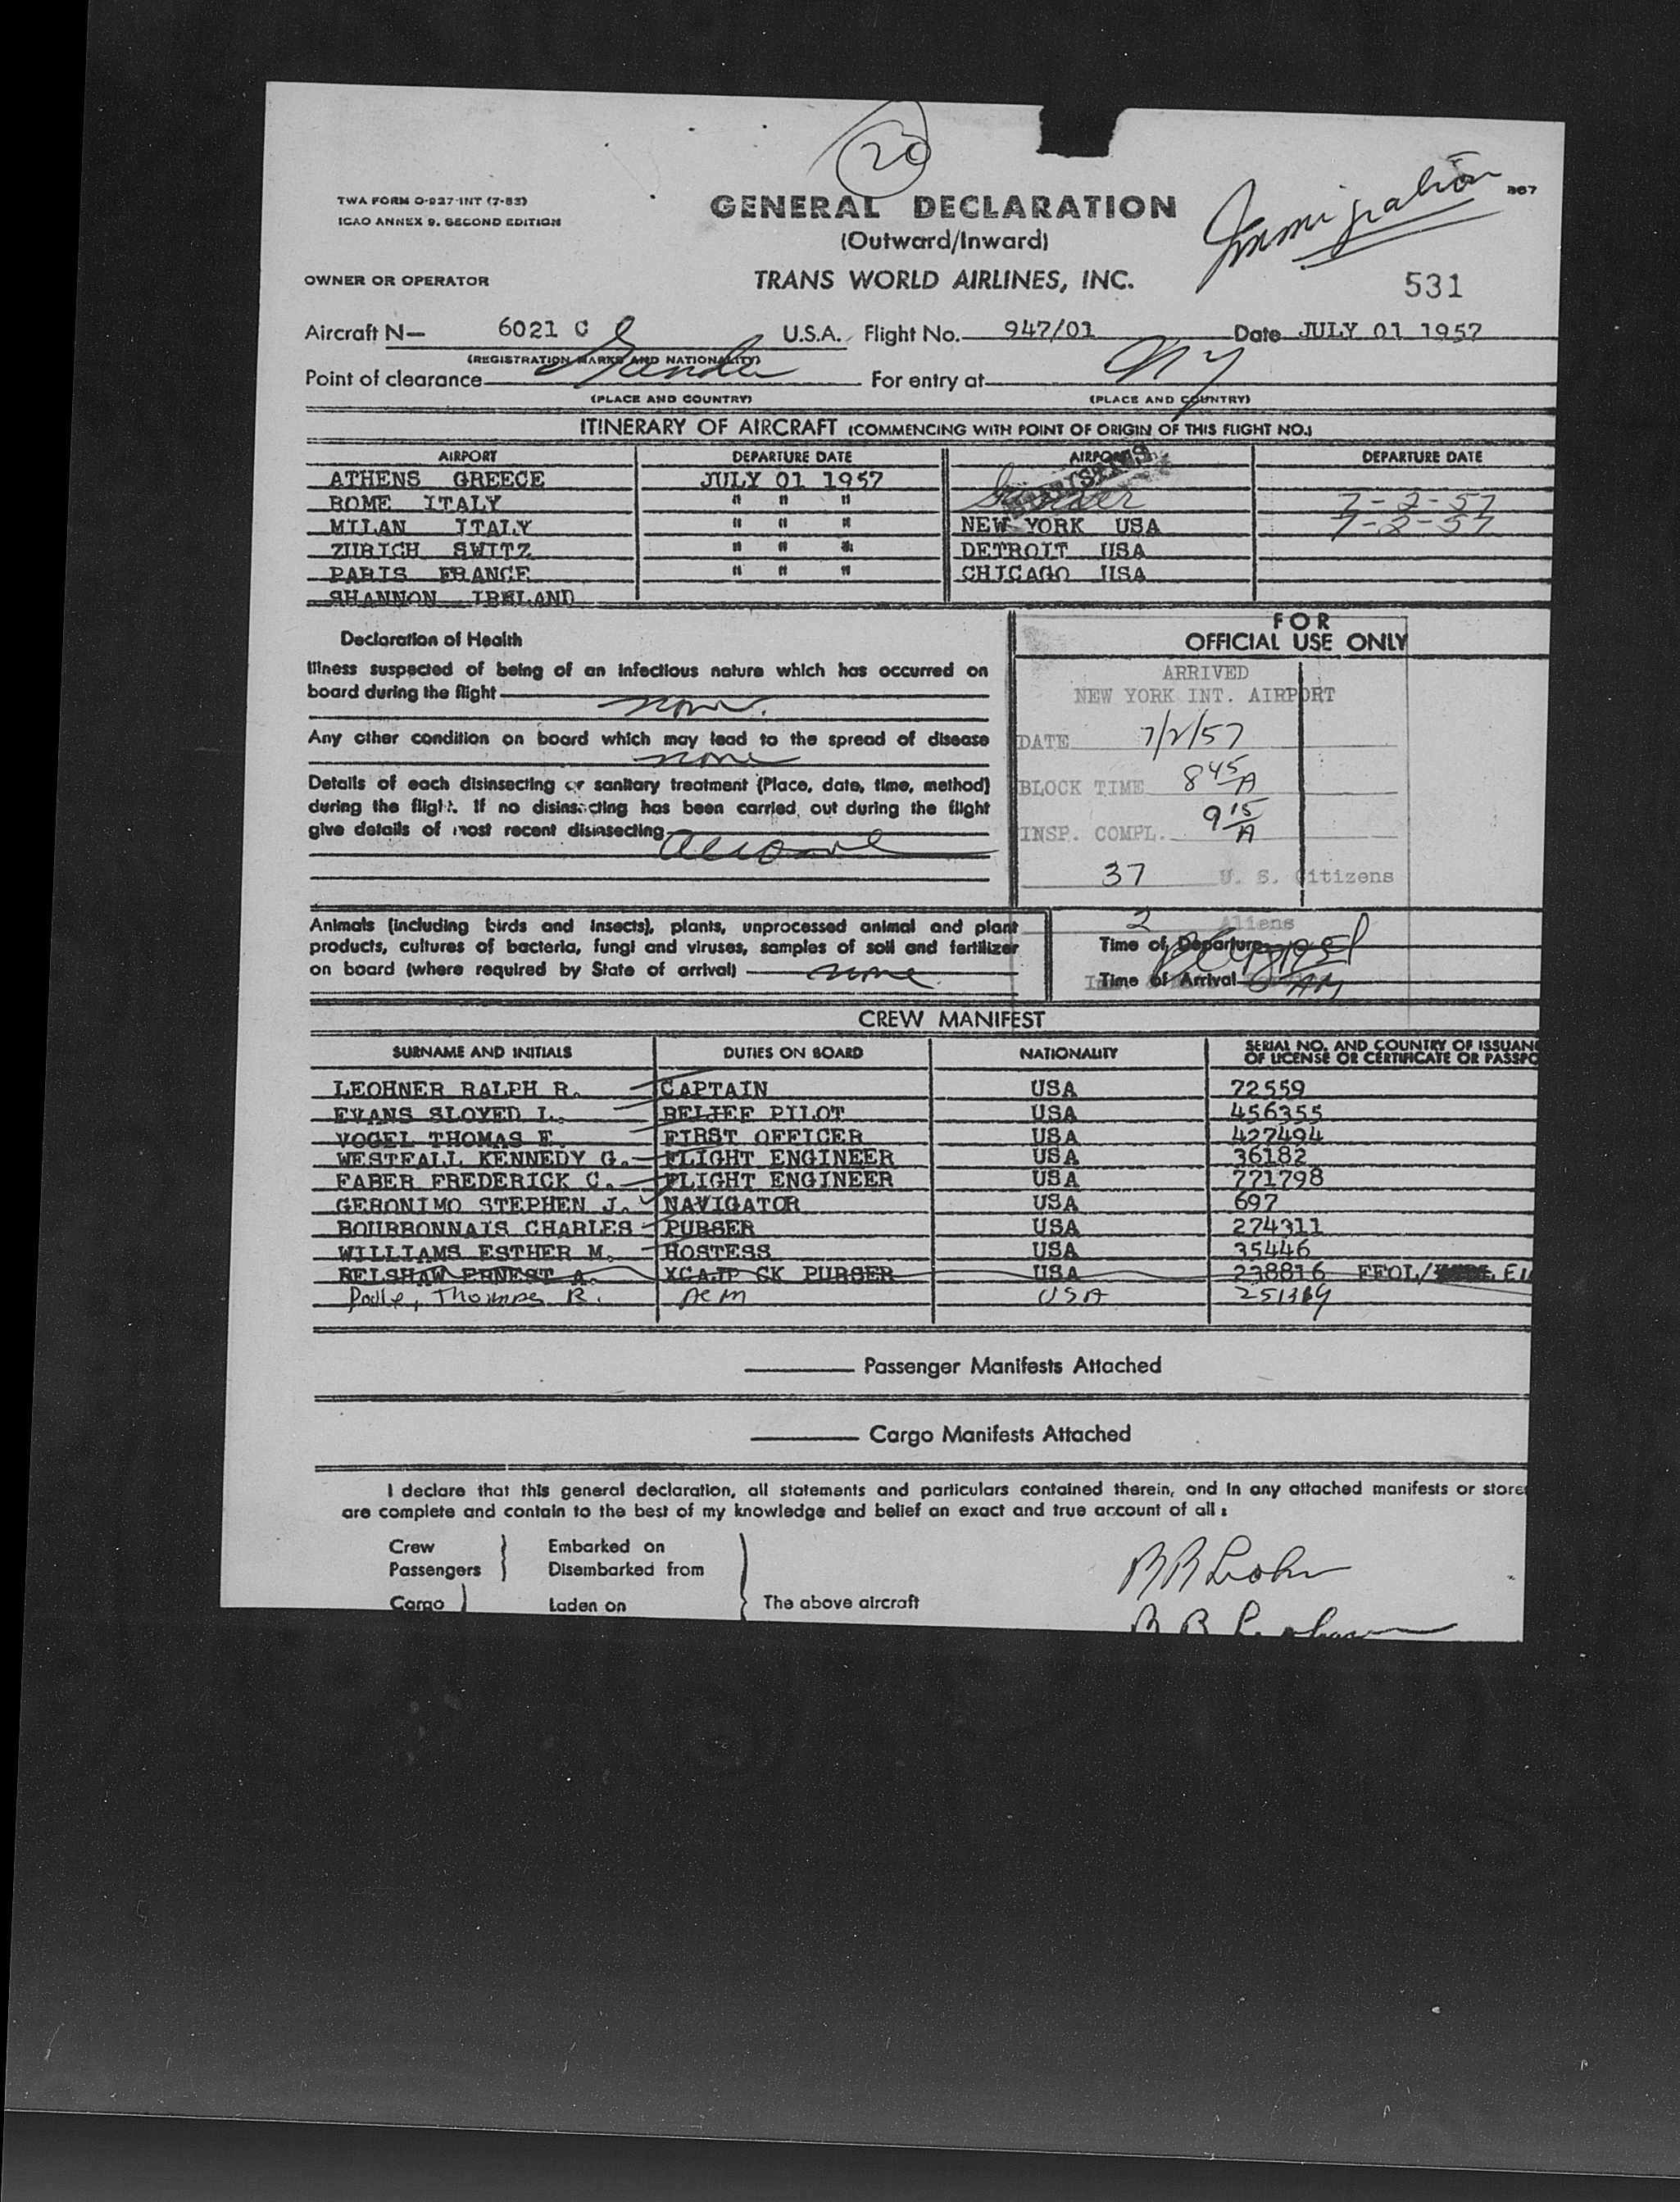 20
TWA FORM O-927-INT (7-53)
ICAO ANNEX 9, SECOND EDITION
GENERAL DECLARATION
(Outward/Inward)
Immigration
OWNER OR OPERATOR
TRANS WORLD AIRLINES, INC.
531
Aircraft N— 6021 C U.S.A. Flight No. 947/01 Date JULY 01 1957
(REGISTRATION MARKS AND NATIONALITY)
Point of clearance Gander For entry at NY
(PLACE AND COUNTRY) (PLACE AND COUNTRY)
ITINERARY OF AIRCRAFT (COMMENCING WITH POINT OF ORIGIN OF THIS FLIGHT NO.)
AIRPORT DEPARTURE DATE AIRPORT DEPARTURE DATE
ATHENS GREECE JULY 01 1957
ROME ITALY " " " Gander 7-2-57
MILAN ITALY " " " NEW YORK USA 7-2-57
ZURICH SWITZ " " " DETROIT USA
PARIS FRANCE " " " CHICAGO USA
SHANNON IRELAND
FOR
OFFICIAL USE ONLY
Declaration of Health
Illness suspected of being of an infectious nature which has occurred on
board during the flight none
Any other condition on board which may lead to the spread of disease
none
Details of each disinsecting or sanitary treatment (Place, date, time, method)
during the flight. If no disinsecting has been carried out during the flight
give details of most recent disinsecting
ARRIVED
NEW YORK INT. AIRPORT
DATE 7/2/57
BLOCK TIME 845 A
INSP. COMPL. 915 A
37 U. S. Citizens
2 Aliens
Animals (including birds and insects), plants, unprocessed animal and plant
products, cultures of bacteria, fungi and viruses, samples of soil and fertilizer
on board (where required by State of arrival) none
Time of Departure
Time of Arrival
CREW MANIFEST
SURNAME AND INITIALS DUTIES ON BOARD NATIONALITY SERIAL NO. AND COUNTRY OF ISSUAN
OF LICENSE OR CERTIFICATE OR PASSPO
LEOHNER RALPH R. CAPTAIN USA 72559
EVANS SLOYED L. RELIEF PILOT USA 456355
VOGEL THOMAS E. FIRST OFFICER USA 427494
WESTFALL KENNEDY G. FLIGHT ENGINEER USA 36182
FABER FREDERICK C. FLIGHT ENGINEER USA 771798
GERONIMO STEPHEN J. NAVIGATOR USA 697
BOURBONNAIS CHARLES PURSER USA 274311
WILLIAMS ESTHER M. HOSTESS USA 35446
BELSHAW ERNEST A. XCAJP CK PURSER USA 238816 FFOL/
Thomas R. ACM USA
Passenger Manifests Attached
Cargo Manifests Attached
I declare that this general declaration, all statements and particulars contained therein, and in any attached manifests or store
are complete and contain to the best of my knowledge and belief an exact and true account of all :
Crew Embarked on
Passengers Disembarked from
Cargo Laden on The above aircraft